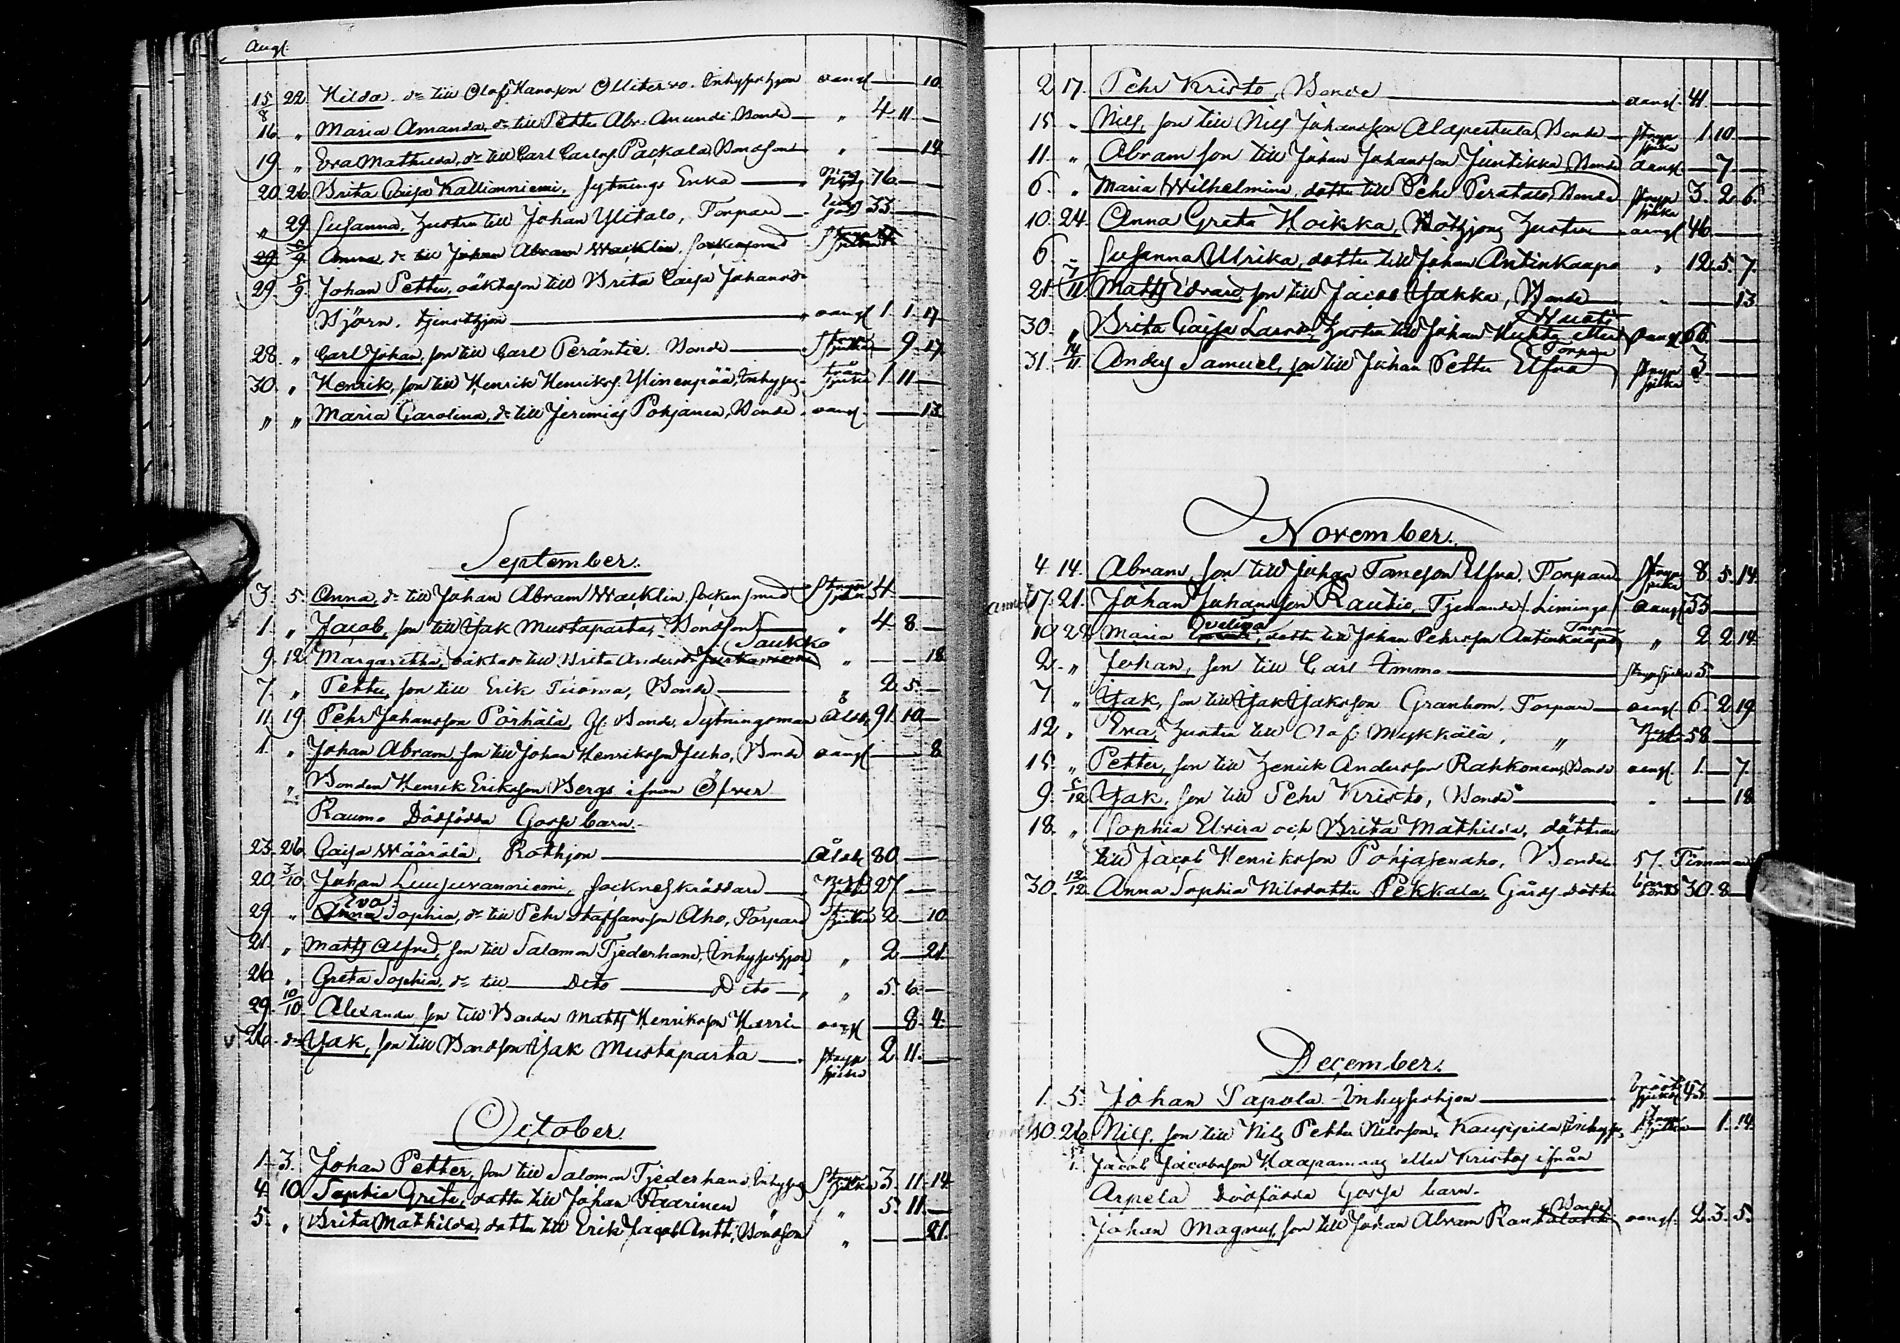 Augt.
15/8 22 Hilda, dr till Olof Hansson Ollitervo, Inhyseshjon oangf — 10
16 " Maria Amanda, dr till Petter Abr: Anundi Bonde — " 4 11 —
19 " Eva Mathilda, dr till Carl Carlss. Packala, Bondson " — 14
20 26 Brita Caisa Kallioniemi, Sytnings Enka — 76 —
" 29 Susanna, hustru till Johan Ylitalo, Torpare — 33 —
29 5/9 Anna, dr till Johan Abram Wacklin, Sockensmed
29 5/9 Johan Petter, oäkta son till Brita Caisa Johansdr
Björn, tjensthjon — oangf 1 1 17
28 " Carl Johan, son till Carl Peräntie, Bonde — 9 17
30 " Henrik, son till Henrik Henrikss. Ylinenpää, Inhyses 1 11 —
" " Maria Carolina, dr till Jeremias Pohjanen, Bonde oangf — 13
September.
3 5 Anna, dr till Johan Abram Wacklin, Sockensmed 4 —
1 " Jacob, son till Isak Mustaparta, Bondson — " 4 8 —
Saukko
9 12 Margaretha, oäkta dr till Brita Andersdr " — 18
7 " Petter, son till Erik Tuoma, Bonde — " 2 5 —
11 19 Pehr Johansson Pörhälä, f. Bonde, Sytningsman Åld. 91 10 —
1 " Johan Abram, son till Johan Henriksson Juho, Bonde oangf — 8
" Bonden Henrik Eriksson Bergs ifrån Öfver
Raumo Dödfödda Gosse barn.
23 26 Caisa Määrälä, Rothjon — Åld. 80 —
20 3/10 Johan Luujuvanniemi, Sockneskräddare — 27 —
Eva
29 " Anna Sophia, dr till Pehr Staffansson Aho, Torpare 2 — 10
21 " Matts Alfred, son till Salomon Tjederhand, Inhyseshjon " 2 — 21
26 " Greta Sophia, dr till — Dito — Dito — " 5 6 —
29 10/10 Alexander son till Bonden Matts Henriksson Herri oangf — 8 4
26 " Isak, son till Bondson Isak Mustaparta — stryp sjuka 2 11 —
October.
1 3 Johan Petter, son till Salomon Tjederhand, Inhyses 3 11 14
4 10 Sophia Greta, dotter till Johan Paarinen " 5 11 —
5 " Brita Mathilda, dotter till Erik Jacob Antti, Bondson " — 21
2 17 Pehr Kristo, Bonde — oangf 41 —
15 " Nils, son till Nils Johansson Alapertula, Bonde stryp sjuka 1 10 —
11 " Abram son till Johan Johansson Juntikka, Bonde oangf — 7 —
6 " Maria Wilhelmina, dotter till Pehr Peratalo, Bonde stryp sjuka 3 2 6
10 24 Anna Greta Hoikka, Rothjons hustru — oangf 46 —
6 " Susanna Ulrika, dotter till Johan Antinkaapo " 12 5 7
21 7/11 Matts Edvard, son till Jacob Yakka, Bonde — " — 13
30 " Brita Caisa Larsdr, hustru till Johan oangf 66 —
Torpare
31 14/11 Anders Samuel, son till Johan Petter Elfva stryp sjuka 3 —
November.
4 14 Abram, son till Johan Tomesson Elfva, Torpare stryp sjuka 8 5 14
17 21 Johan Johansson Rautio, Tjenande i Limingo oangf 53 —
10 22 Maria, dotter till Johan Pehrsson Antinkaapo Torpare " 2 2 14
2 " Johan, son till Carl Immo — stryp sjuka 5 —
7 " Isak, son till Isak Isaksson Granbom, Torpare — oangf 6 2 19
12 " Eva, hustru till Olof Mykkälä, " 58 —
15 " Petter, son till Henrik Andersson Rahkonen, Bonde oangf 1 — 7
9 5/12 Isak, son till Pehr Kristo, Bonde — " — 18
18 " Sophia Elvira och Brita Mathilda, döttrar
till Jacob Henriksson Pohjasenaho, Bonde 57 Timmar
30 12/12 Anna Sophia Nilsdotter Pekkala, Gårds dotter 30 8 —
December.
1 5 Johan Papola Inhyseshjon — 43 —
10 26 Nils, son till Nils Petter Nilsson, Kauppila, Inhyses — 1 14
Jacob Jacobsson Haapamaa eller Kristos ifrån
Arpela Dödfödda Gosse barn.
Bonde
Johan Magnus, son till Johan Abram Rantalo oangf 2 3 5